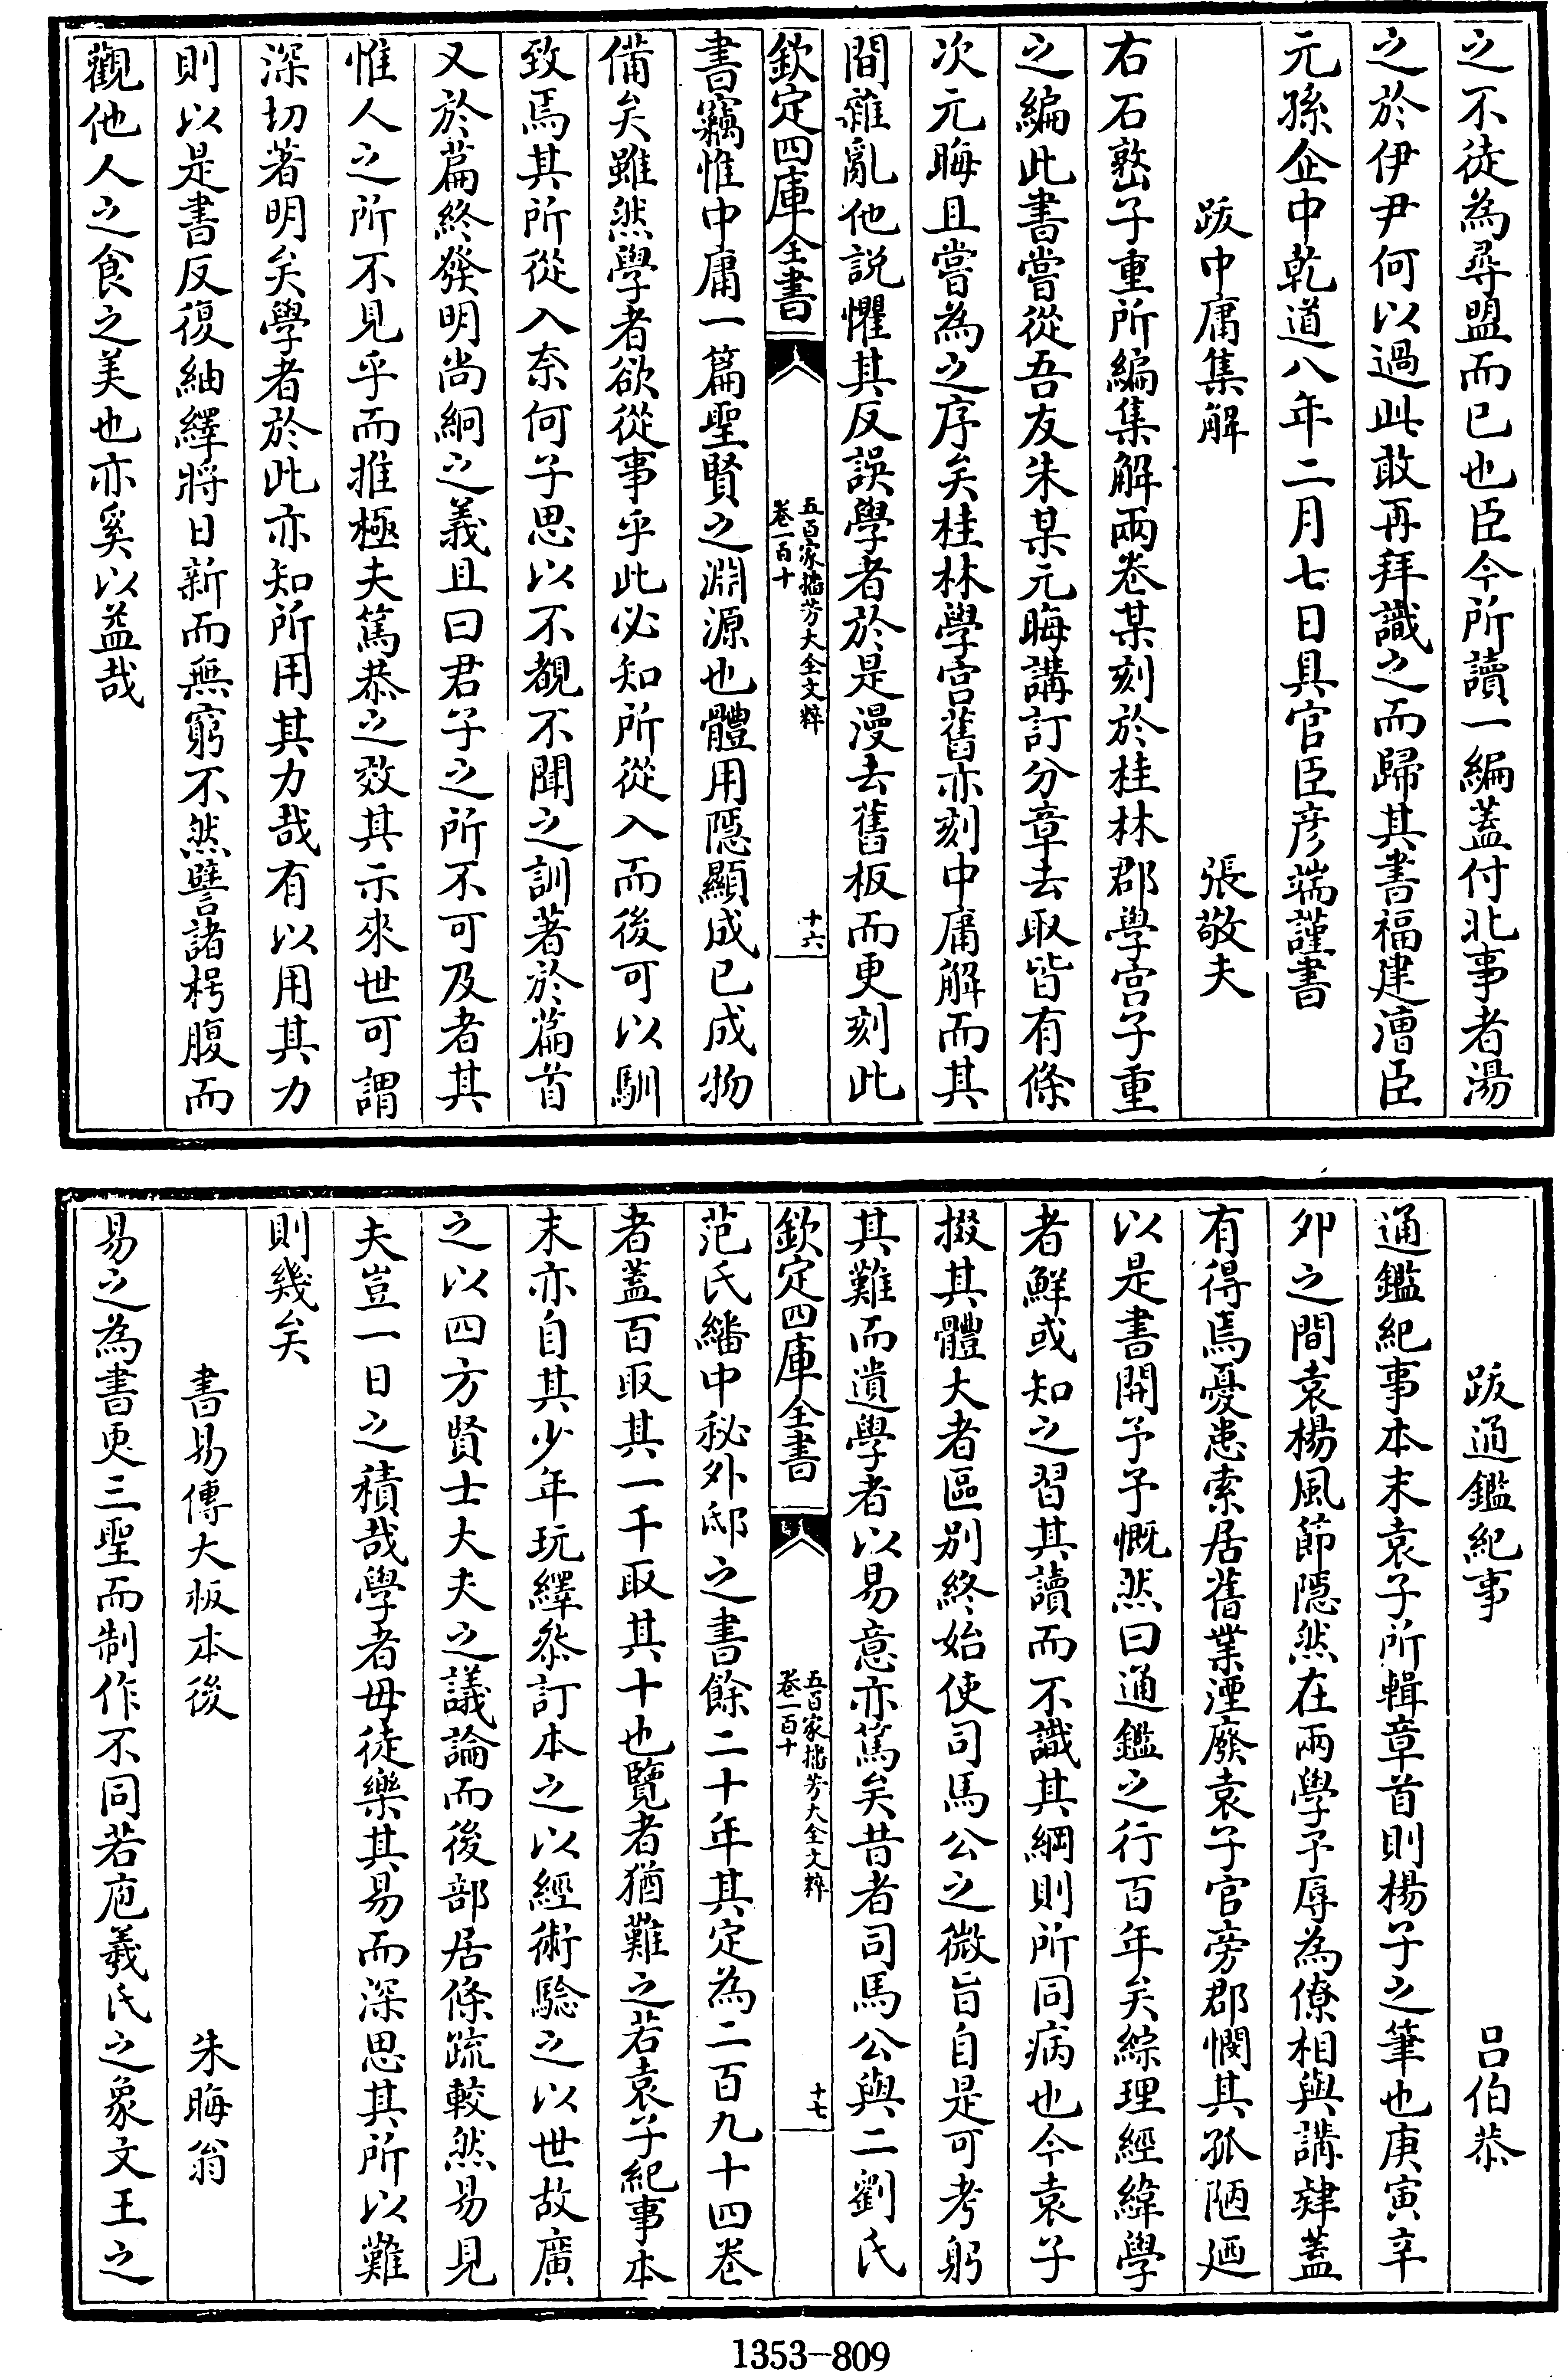 之不徒為尋盟而已也臣今所讀一編蓋付北事者湯
之於伊尹何以過此敢再拜識之而歸其書福建漕臣
元孫企中乾道八年二月七日具官臣彦端謹書
跋中庸集解　張敬夫
右石㪟子重所編集解兩卷某刻於桂林郡學宫子重
之編此書嘗從吾友朱某元晦講訂分章去取皆有條
次元晦且嘗為之序矣桂林學宫舊亦刻中庸解而其
間雜亂他説懼其反誤學者於是漫去舊板而更刻此
欽定四庫全書
五百家播芳大全文粹
卷一百十
十六
書竊惟中庸一篇聖賢之淵源也體用隱顯成已成物
備矣雖然學者欲從事乎此必知所從入而後可以馴
致焉其所從入奈何子思以不覩不聞之訓著於篇首
又於篇終發明尚絅之義且曰君子之所不可及者其
惟人之所不見乎而推極夫篤恭之效其示來世可謂
深切著明矣學者於此亦知所用其力哉有以用其力
則以是書反復紬繹將日新而無窮不然譬諸枵腹而
觀他人之食之美也亦奚以益哉
跋通鑑紀事　吕伯恭
通鑑紀事本末袁子所輯章首則楊子之筆也庚寅辛
夘之間袁楊風節隱然在兩學予辱為僚相與講肄蓋
有得焉憂患索居舊業湮廢袁子官旁郡憫其孤陋廼
以是書開予予慨然曰通鑑之行百年矣綜理經緯學
者鮮或知之習其讀而不識其綱則所同病也今袁子
掇其體大者區别終始使司馬公之微旨自是可考躬
其難而遺學者以易意亦篤矣昔者司馬公與二劉氏
欽定四庫全書
五百家播芳大全文粹
卷一百十
十七
范氏繙中秘外邸之書餘二十年其定為二百九十四卷
者蓋百取其一千取其十也覽者猶難之若袁子紀事本
末亦自其少年玩繹叅訂本之以經術驗之以世故廣
之以四方賢士大夫之議論而後部居條疏較然易見
夫豈一日之積哉學者毋徒樂其易而深思其所以難
則幾矣
書易傳大板本後　朱晦翁
易之為書更三聖而制作不同若庖羲氏之象文王之
1353-809